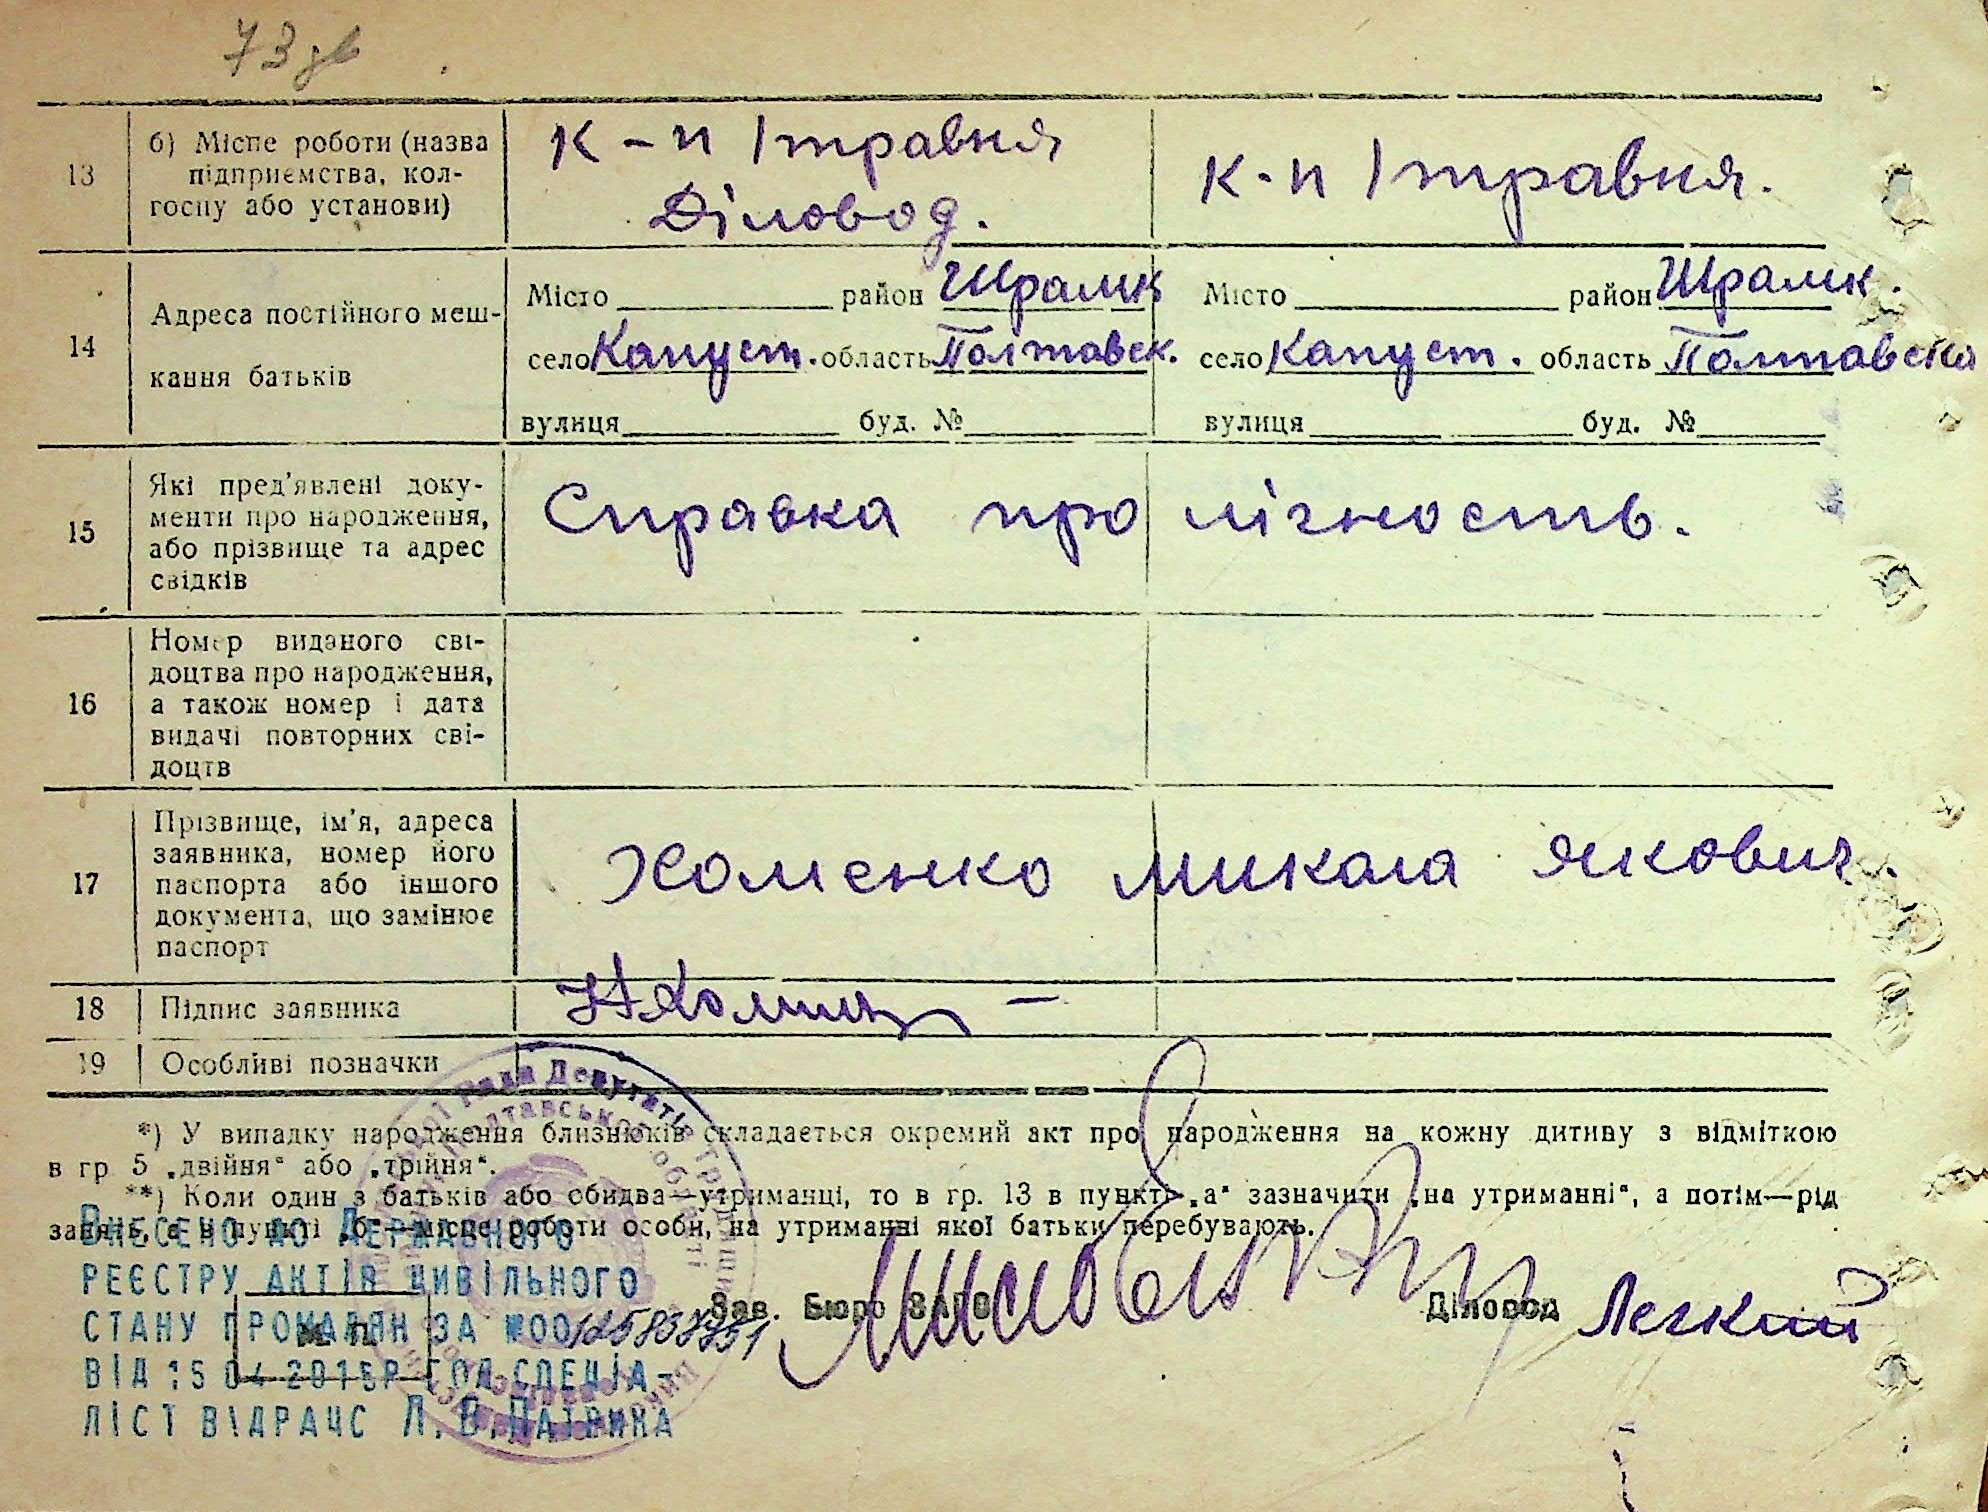 73 зв
13
б) Місце роботи (назва
підприємства, кол-
госпу або установи)
к-п 1 травня
Діловод.
к-п 1 травня.
14
Адреса постійного меш-
кання батьків
Місто район Шрамк
село Капуст. область Полтавск.
вулиця буд. №
Місто район Шрамк.
село Капуст. область Полтавска
вулиця буд. №
15
Які пред'явлені доку-
менти про народження,
або прізвище та адрес
свідків
Справка про лічность.
16
Номер виданого сві-
доцтва про народження,
а також номер і дата
видачі повторних сві-
доцтв
17
Прізвище, ім'я, адреса
заявника, номер його
паспорта або іншого
документа, що замінює
паспорт
Хоменко Микола Якович.
18
Підпис заявника
19
Особливі позначки
*) У випадку народження близнюків складається окремий акт про народження на кожну дитину з відміткою
в гр 5 „двійня“ або „трійня“.
**) Коли один з батьків або обидва—утриманці, то в гр. 13 в пункті „а“ зазначити „на утриманні“, а потім—рід
занять, а в пункті „б“—місце роботи особи, на утриманні якої батьки перебувають.
Зав. Бюро ЗАГС
Діловод Легкий
М П
ВНЕСЕНО ДО ДЕРЖАВНОГО
РЕЄСТРУ АКТІВ ЦИВІЛЬНОГО
СТАНУ ГРОМАДЯН ЗА №00
ВІД 15 04 2015Р ГОЛ СПЕЦІА-
ЛІСТ ВІДРАЦС Л.В.